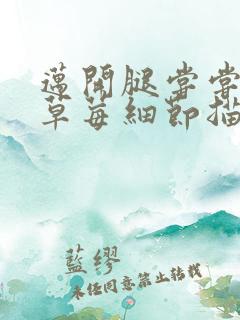 邁開腿嘗嘗
草莓細節描
藍繆
未经同意禁止转载